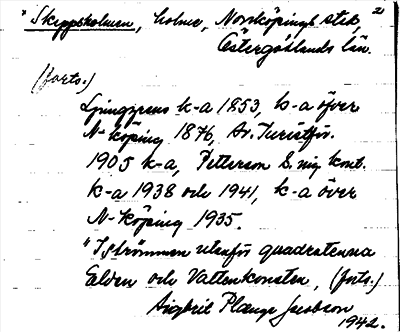 "Skeppsholmen, holme, Norrköpings stad, 2)
Östergötlands län.
(forts.)
Ljunggrens k-a 1853, k-a över
N-köping 1876, Sv. Turistför.
1905 k-a, Petterson E. niq kont.
k-a 1938 och 1941, k-a över
N-köping 1935.
"I strömmen utanför quadraterna
Elden och Vattenkonsten, (forts.)
Sigbrit Plænge Jacobson
1942.